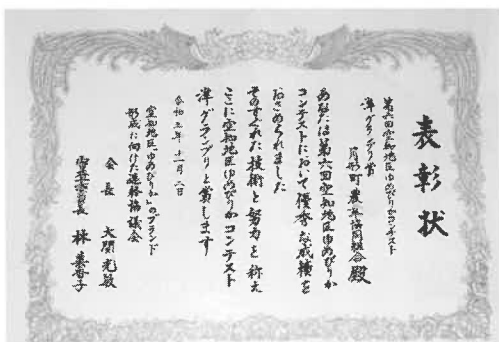 表彰状
第六回空知地区ゆめぴりかコンテスト
準グランプリ賞
月形町農業協同組合 殿
あなたは第六回空知地区ゆめぴりか
コンテストにおいて優秀な成績を
おさめられました
そのすぐれた技術と努力を称え
ここに空知地区ゆめぴりかコンテスト
準グランプリを賞します
令和三年十一月二日
空知地区「ゆめぴりか」のブランド
形成に向けた連絡協議会
会長 大関光敏
審査委員長 林美香子